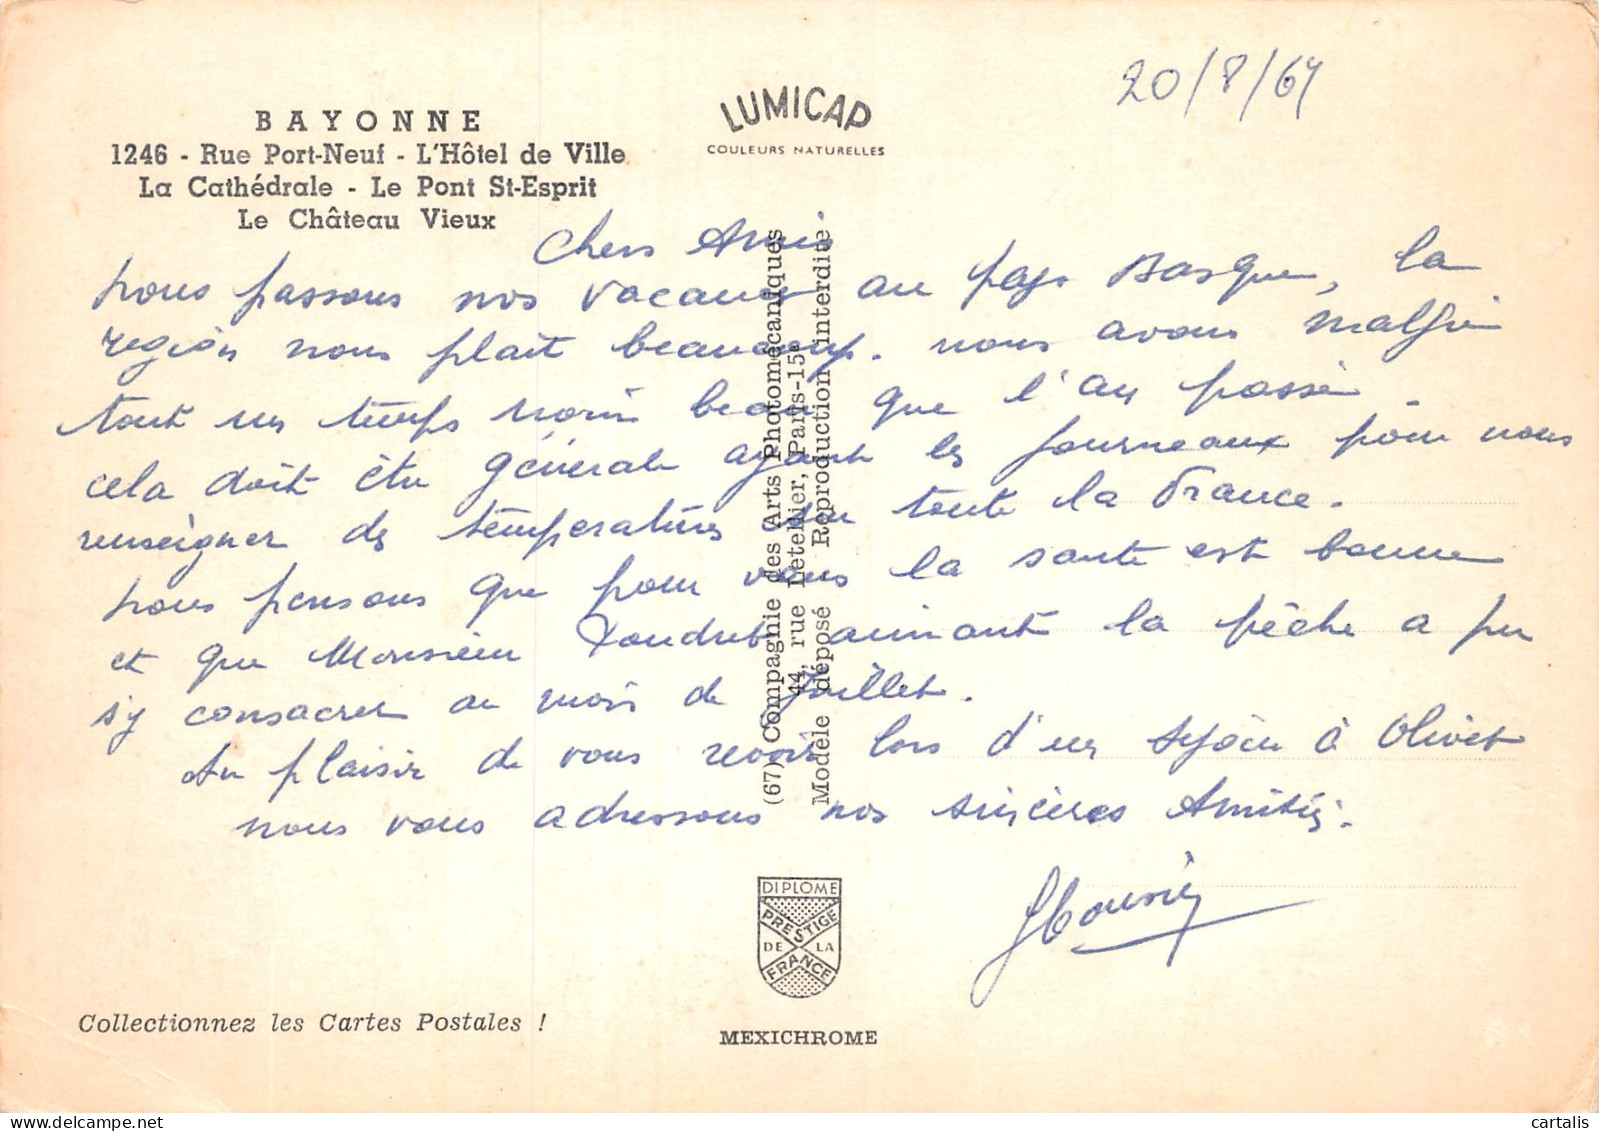 20/8/64
BAYONNE
1246 - Rue Port-Neuf - L'Hôtel de Ville
La Cathédrale - Le Pont St-Esprit
Le Château Vieux
LUMICAP
COULEURS NATURELLES
Chers Amis
nous passons nos vacances au pays Basque, la
region nous plait beaucoup. nous avons malgré
tout un temps moins beau que l'an passé.
cela doit être générale ayant les journeaux pour nous
renseigner des températures sur toute la France.
nous pensons que pour vous la santé est bonne
et que Monsieur aimant la pêche a pu
s'y consacrer au mois de Juillet.
Au plaisir de vous revoir lors d'un séjour à Olivet
nous vous adressons nos sincères Amitiés.
(67) Compagnie des Arts Photomécaniques
44, rue Letellier, Paris-15e
Modèle déposé Reproduction interdite
DIPLOME
PRESTIGE
DE LA
FRANCE
MEXICHROME
Collectionnez les Cartes Postales !
cartalis